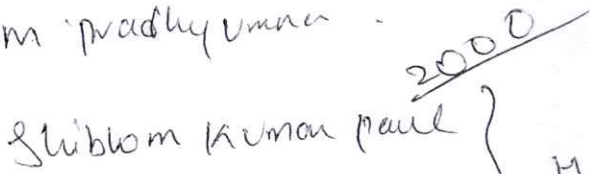 m pradhyumna .
2000
Shibhom Kumar paul }
M